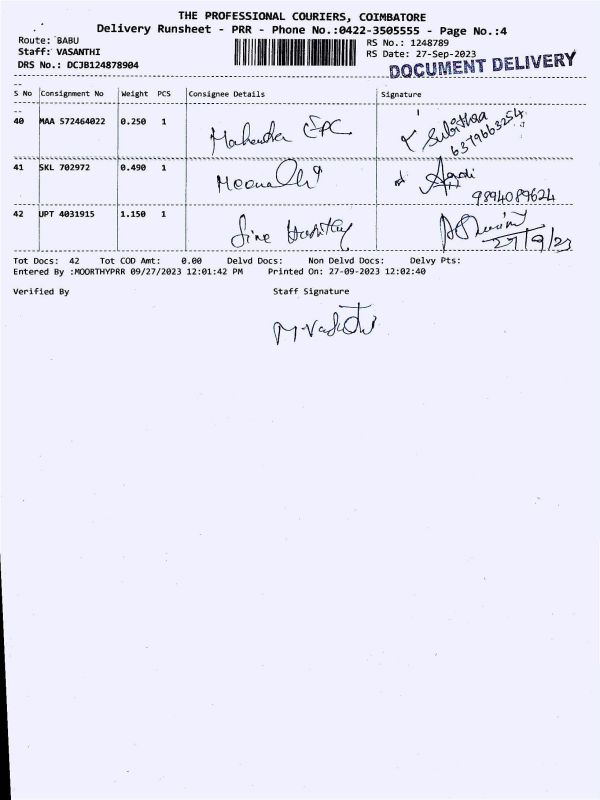 THE PROFESSIONAL COURIERS, COIMBATORE
Delivery Runsheet - PRR - Phone No.:0422-3505555 - Page No.:4
Route: BABU
RS No.: 1248789
Staff: VASANTHI
RS Date: 27-Sep-2023
DRS No.: DCJB124878904
DOCUMENT DELIVERY
S No Consignment No Weight PCS Consignee Details Signature
40 MAA 572464022 0.250 1 Mahendra EPC Subithaa
6379663254
41 SKL 702972 0.490 1
9894089624
42 UPT 4031915 1.150 1
27/9/23
Tot Docs: 42 Tot COD Amt: 0.00 Delvd Docs: Non Delvd Docs: Delvy Pts:
Entered By :MOORTHYPRR 09/27/2023 12:01:42 PM Printed On: 27-09-2023 12:02:40
Verified By Staff Signature